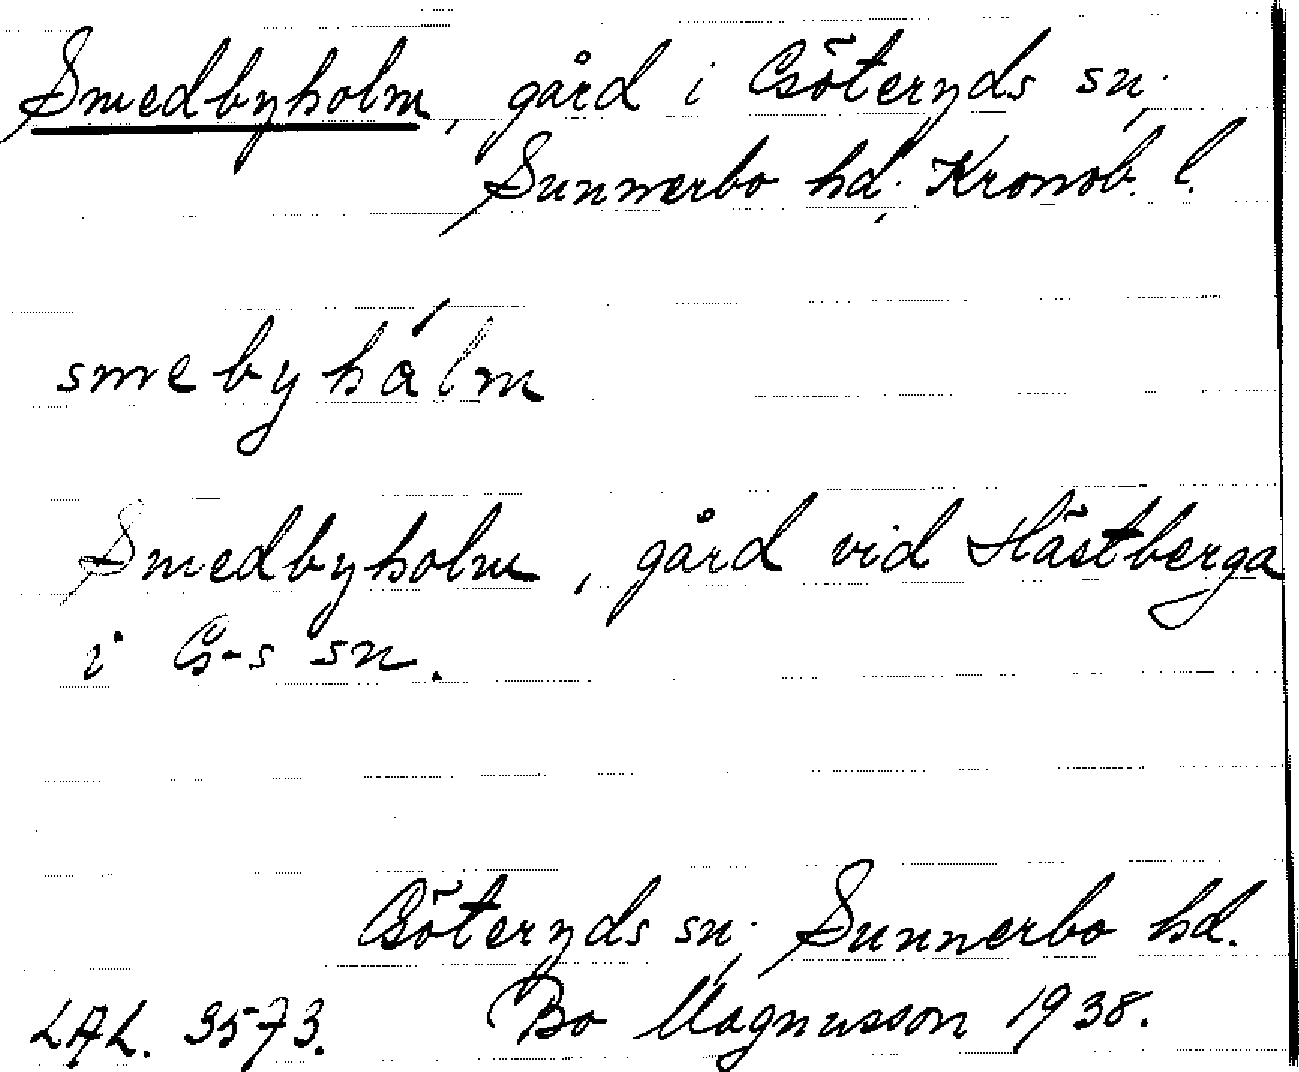 Smedbyholm, gård i Göteryds sn,
Sunnerbo hd, Kronob. l.
smebyhálm
Smedbyholm, gård vid Hästberga
i G-s sn.
Göteryds sn, Sunnerbo hd.
LAL. 3573. Bo Magnusson 1938.